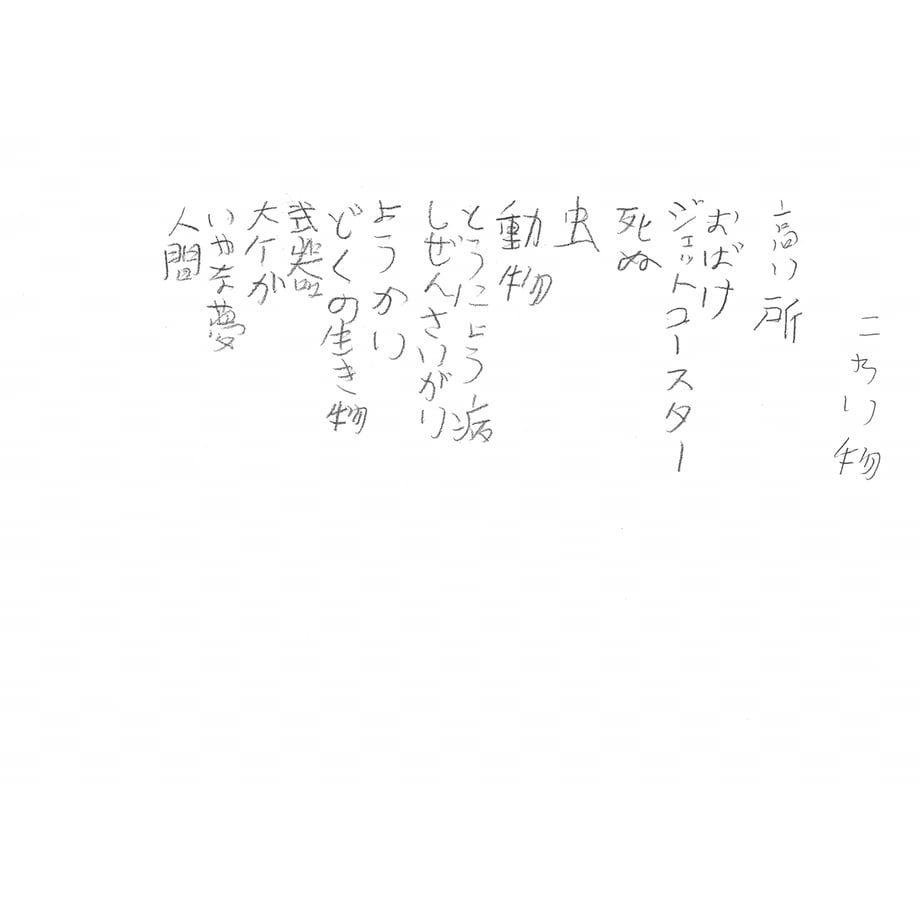 こわい物
高い所
おばけ
ジェットコースター
死ぬ
虫
動物
とうにょう病
しぜんさいがり
ようかい
どくの生き物
武器
大ケが
いやな夢
人間